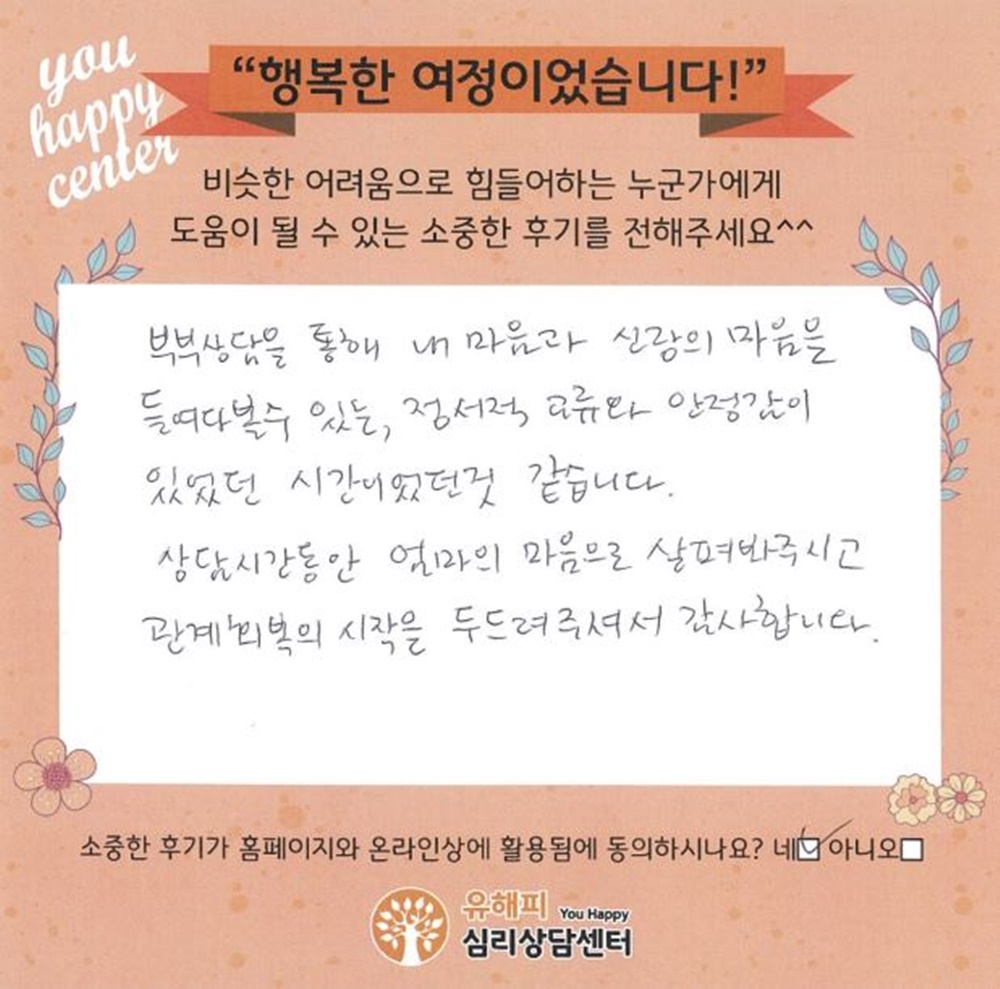 you
happy
center
“행복한 여정이었습니다!”
비슷한 어려움으로 힘들어하는 누군가에게
도움이 될 수 있는 소중한 후기를 전해주세요^^
부부상담을 통해 내 마음과 신랑의 마음을
들여다볼수 있는, 정서적 교류와 안정감이
있었던 시간이었던것 같습니다.
상담시간동안 엄마의 마음으로 살펴봐주시고
관계회복의 시작을 두드려주셔서 감사합니다.
소중한 후기가 홈페이지와 온라인상에 활용됨에 동의하시나요? 네☑ 아니오☐
유해피 You Happy
심리상담센터